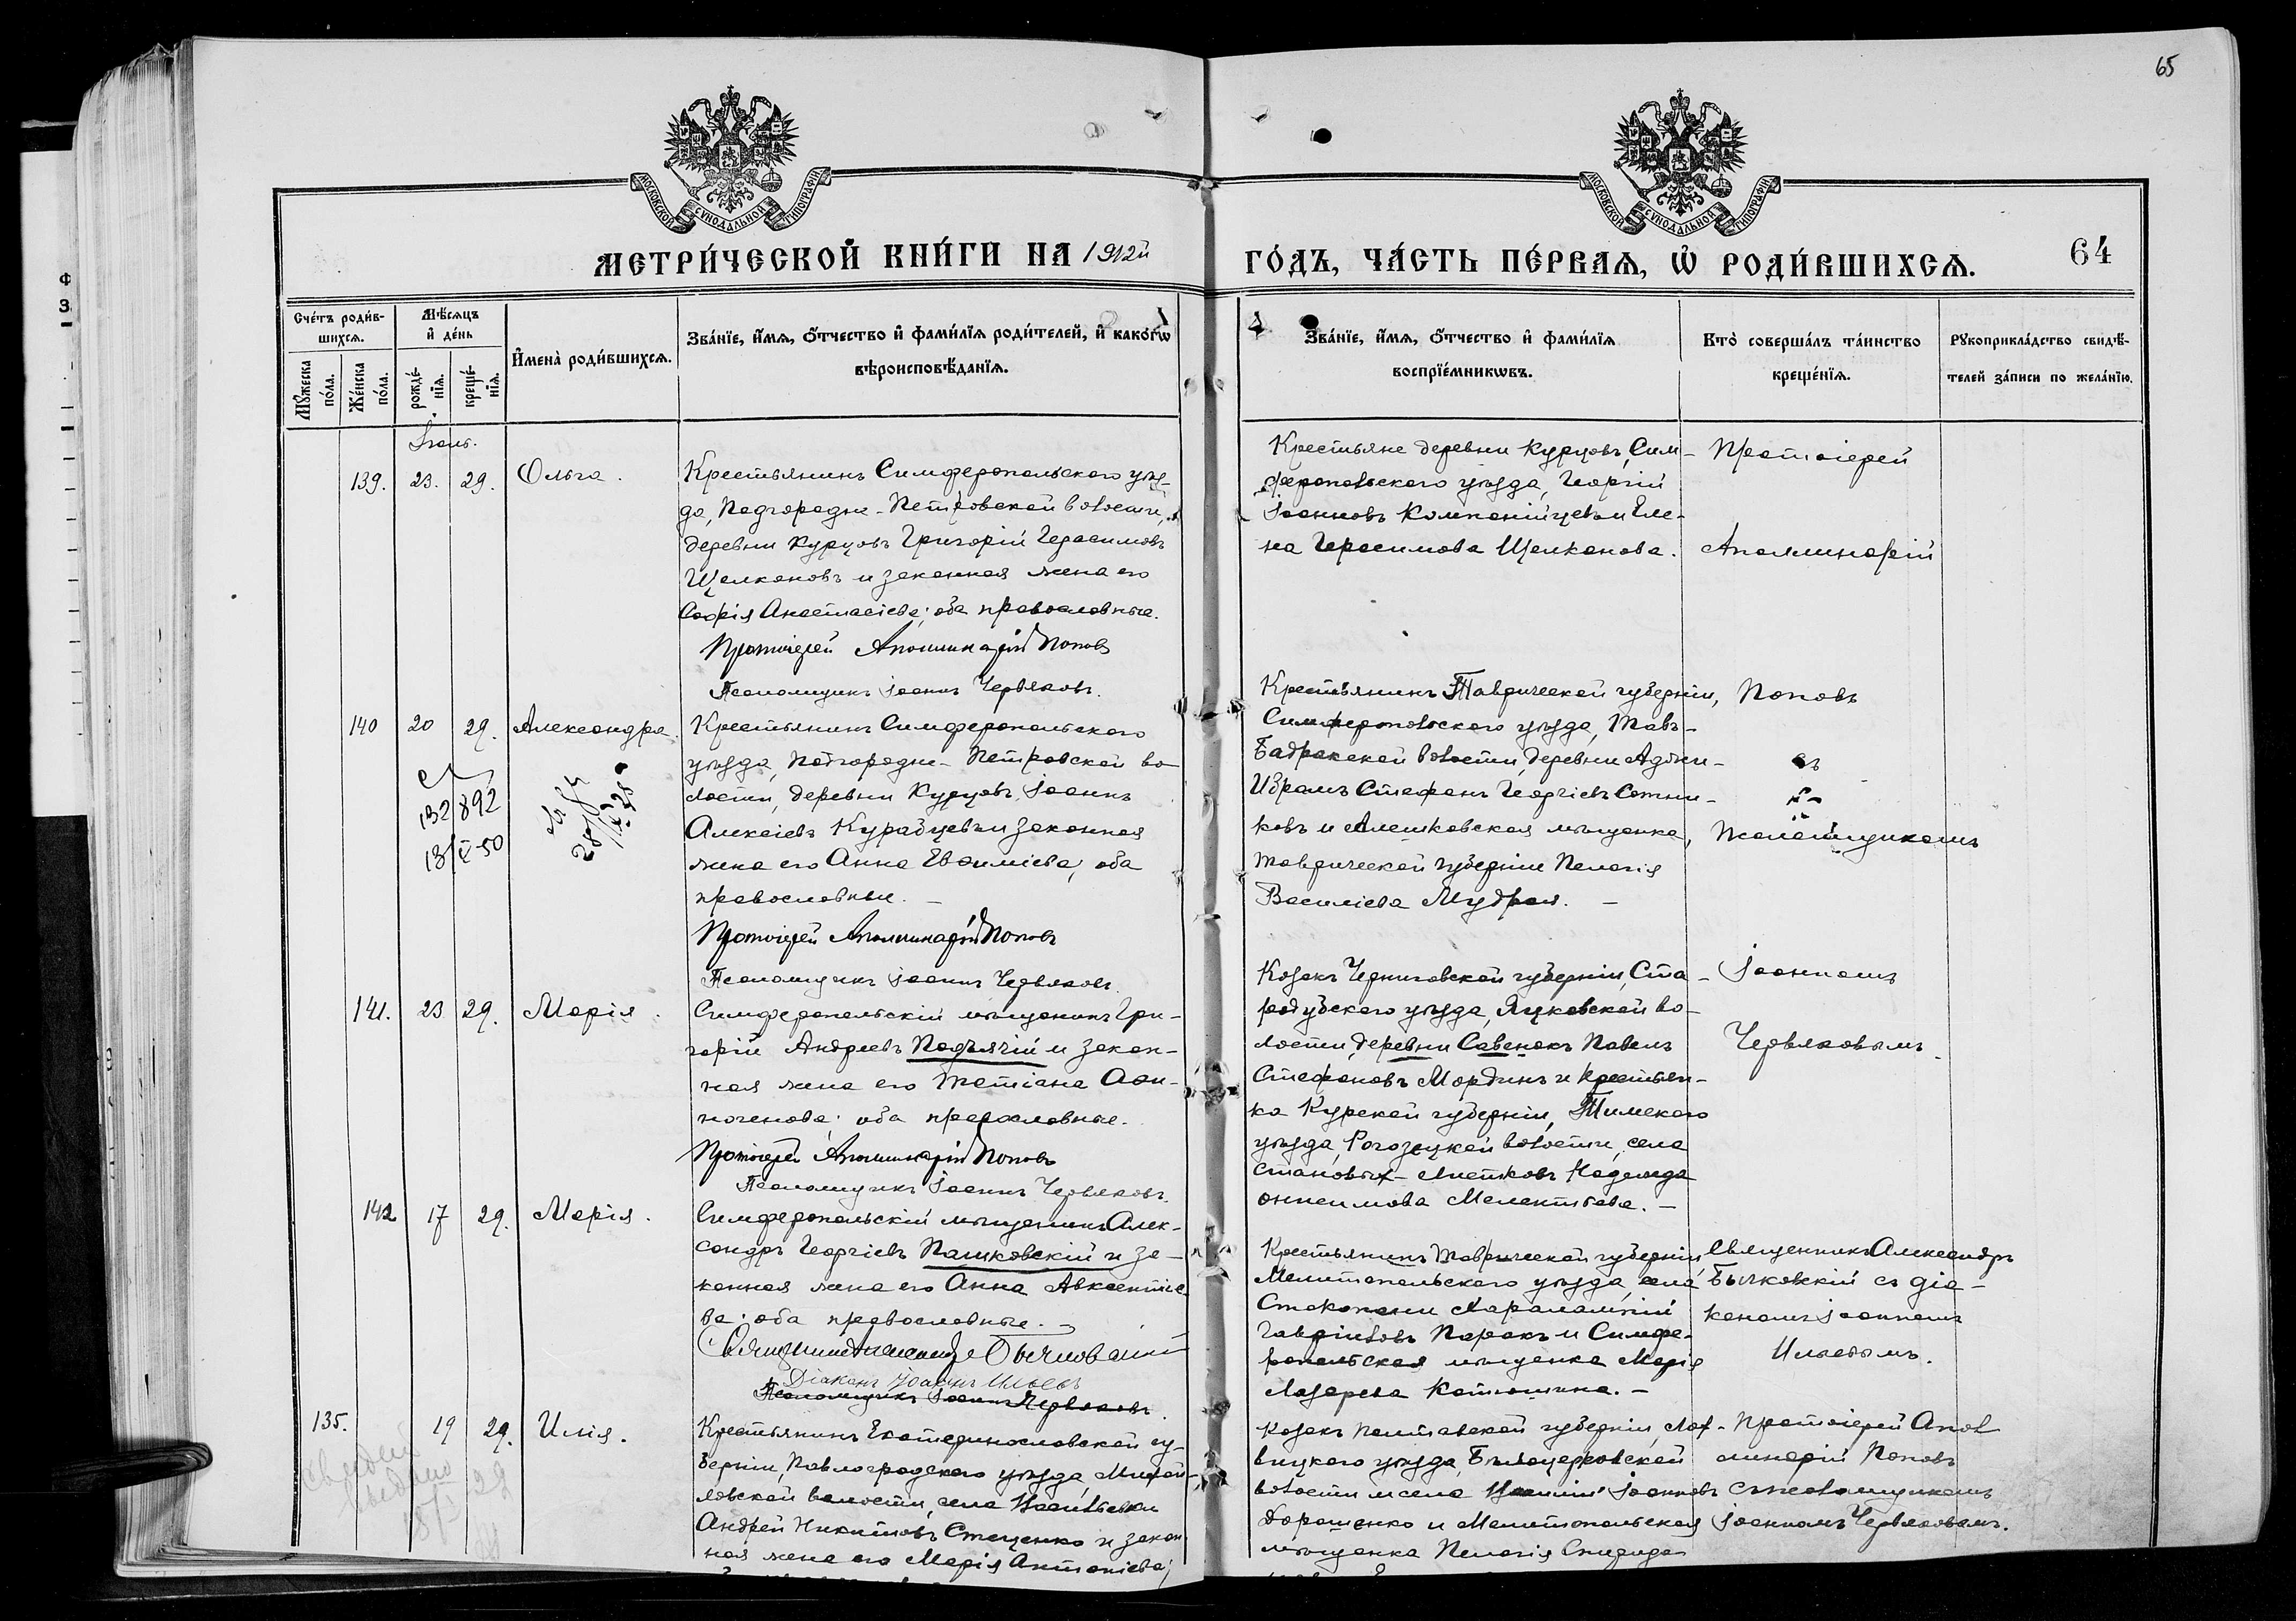 65
МОСКОВСКОЙ СѴНОДАЛЬНОЙ ТИПОГРАФІИ
МОСКОВСКОЙ СѴНОДАЛЬНОЙ ТИПОГРАФІИ
МЕТРИ́ЧЕСКОЙ КНИ́ГИ НА 1912й
ГО́ДЪ, ЧА́СТЬ ПЕ́РВАѦ, Ѡ҆ РОДИ́ВШИХСѦ.
64
Сче́тъ роди́в-
шихсѧ.
Мꙋ́жеска
по́ла.
Же́нска
по́ла.
Мѣ́сѧцъ
и҆ де́нь
рожде́-
нїѧ.
креще́-
нїѧ.
И҆мена̀ роди́вшихсѧ.
Зва́нїе, и҆́мѧ, ѻ҆́тчество и҆ фами́лїѧ роди́телей, и҆ како́гѡ
вѣроисповѣ́данїѧ.
Зва́нїе, и҆́мѧ, ѻ҆́тчество и҆ фами́лїѧ
воспрїе́мникѡвъ.
Кто̀ соверша́лъ та́инство
креще́нїѧ.
Рꙋкоприкла́дство свидѣ́-
телей за́писи по жела́нїю.
Іюль.
139. 23. 29. Ольга.
Крестьянинъ Симферопольскаго уѣз-
да, Подгородне-Петровской волости,
деревни Курцовъ Григорій Герасимовъ
Щелкановъ и законная жена его
Софія Анастасіева; оба православные.
Протоіерей Аполлинарій Поповъ
Псаломщикъ Іоаннъ Червяковъ.
Крестьяне деревни Курцовъ, Сим-
феропольскаго уѣзда, Георгій
Іоанновъ Компанійцевъ и Еле-
на Герасимова Щелканова.
Протоіерей
Аполлинарій
140 20 29. Александра.
132/892
13/IX 50
Крестьянинъ Симферопольскаго
уѣзда, Подгородне-Петровской во-
лости, деревни Курцовъ, Іоаннъ
Алексіевъ Курабцевъ и законная
жена его Анна Евѳиміева, оба
православные. —
Протоіерей Аполлинарій Поповъ
Псаломщикъ Іоаннъ Червяковъ.
Крестьянинъ Таврической губерніи,
Симферопольскаго уѣзда, Тавъ-
Бадракской волости, деревни Аджи-
Ибрамъ Стефанъ Георгіевъ Сотни-
ковъ и Алешковская мѣщанка,
Таврической губерніи Пелагія
Василіева Мудрая. —
Поповъ
съ
псаломщикомъ
141. 23 29. Марія.
Симферопольскій мѣщанинъ Гри-
горій Андреевъ Подъячій и закон-
ная жена его Татіана Аѳи-
ногенова; оба православные.
Протоіерей Аполлинарій Поповъ
Псаломщикъ Іоаннъ Червяковъ.
Козакъ Черниговской губерніи, Ста-
родубскаго уѣзда, Яцковской во-
лости, деревни Савенокъ Павелъ
Стефановъ Мординъ и крестьян-
ка Курской губерніи, Тимскаго
уѣзда, Рогозецкой волости, села
Становыхъ-Листковъ Надежда
Онисимова Мелентьева. —
Іоанномъ
Червяковымъ.
142 17 29. Марія.
Симферопольскій мѣщанинъ Алек-
сандръ Георгіевъ Пашковскій и за-
конная жена его Анна Авксентіе-
ва; оба православные. —
Священникъ Александръ Бычковскій
Діаконъ Іоаннъ Ильевъ
Псаломщикъ Іоаннъ Червяковъ
Крестьянинъ Таврической губерніи,
Мелитопольскаго уѣзда, села
Стокопани Харалампій
Гавріиловъ Паракъ и Симфе-
ропольская мѣщанка Марія
Лазарева Катюшина. —
Священникъ Александръ
Бычковскій съ діа-
кономъ Іоанномъ
Ильевымъ.
135. 19 29. Илія.
Крестьянинъ Екатеринославской гу-
берніи, Павлоградскаго уѣзда, Михай-
ловской волости, села
Андрей Никитовъ Стеценко и закон-
ная жена его Марія Антоніева;
Козакъ Полтавской губерніи, Лох-
вицкаго уѣзда, Бѣлоцерковской
волости и села Іоанновъ
Дорошенко и Мелитопольская
мѣщанка Пелагія Спиридо-
Протоіерей Апол-
линарій Поповъ
съ псаломщикомъ
Іоанномъ Червяковымъ.